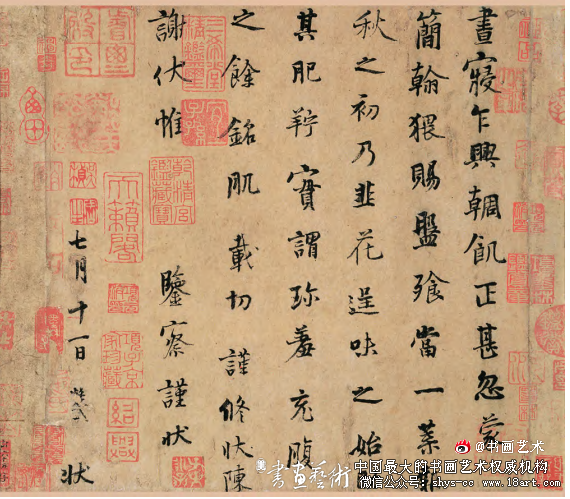 晝寢乍興輖飢正甚忽蒙
簡翰猥賜盤飧當一葉報
秋之初乃韭花逞味之始
其肥羜實謂珍羞充腹
之餘銘肌載切謹修狀陳
謝伏惟 鑒察謹狀
七月十一日 狀
三希堂精鑑璽
宜子孫
乾清宮鑑藏寶
天籟閣
@书画艺术
書畫藝術
中国最大的书画艺术权威机构
微信公众号:shys-cc www.18art.com